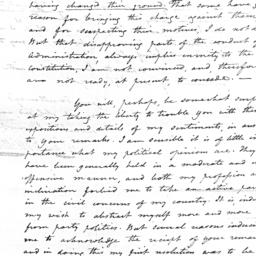 having changed their ground. That some have g
reason for bringing this charge against them
and for suspecting their motives, I do not d
But that disapproving parts of the conduct of
Administration always implies enmity to the
Constitution, I am not convinced, and therefor
am not ready, at present to concede. —
You will, perhaps, be somewhat surp
at my taking the liberty to trouble you with this
expositions and details of my sentiments, in an
to your remarks. I am sensible it is of little im
portance what my political opinions are. They
have been generally held in a moderate and in
offensive manner, and both my profession a
inclination forbid me to take an active par
in the civil concerns of my country. It is, ind
my wish to abstract myself more and more
from party politics. But several reasons induce
me to acknowledge the receipt of your remar
and in doing this my first resolution was to be